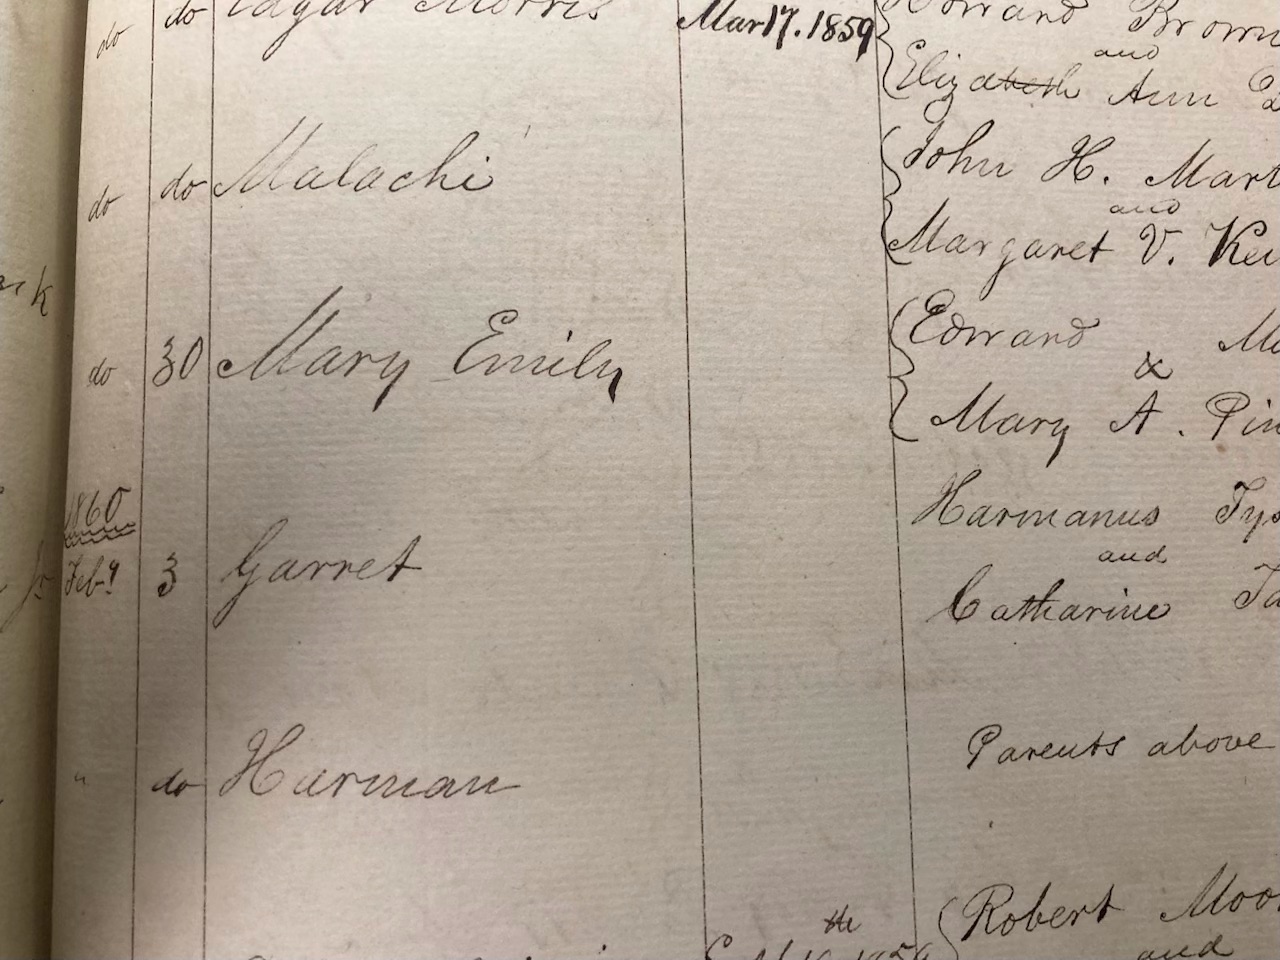 do do Edgar Morris Mar 17. 1859 Edward Brown
and
Elizabeth Ann
do do Malachi John H. Mart
and
Margaret V. Kei
rk
do 30 Mary Emily Edward Mo
&
Mary A. Pin
1860
Feby 3 Garret Harmanus Tys
and
Catharine Ta
" do Harman Parents above
th
1859 Robert Moor
and